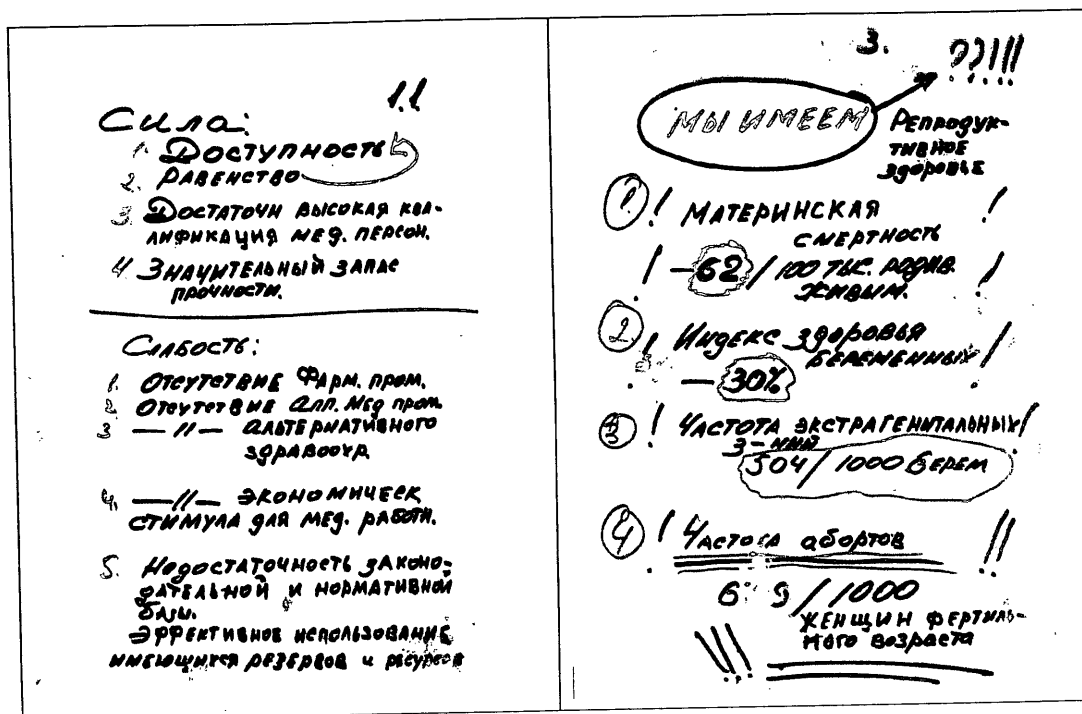 1.1
Сила:
1. Доступность
2. Равенство
3. Достаточн высокая ква-
лификация мед. персон.
4. Значительный запас
прочности.
Слабость:
1. Отсутствие Фарм. пром.
2. Отсутствие апп. мед пром
3 —//— альтернативного
здравоохр
4. —//— экономическ
стимула для мед. работн.
5. Недостаточность законо-
дательной и нормативной
базы.
Эффективное использование
имеющихся резервов и ресурсов
3.
??!!!
МЫ ИМЕЕМ
Репродук-
тивное
здоровье
1. ! Материнская !
смертность
! – 62 / 100 тыс. родив. !
живым.
2. ! Индекс здоровья
беременных !
– 30%
3 ! Частота экстрагенитальных !
з-ний
504 / 1000 берем
4 ! Частота абортов !!
/ 1000
женщин фертиль-
ного возраста
!!!